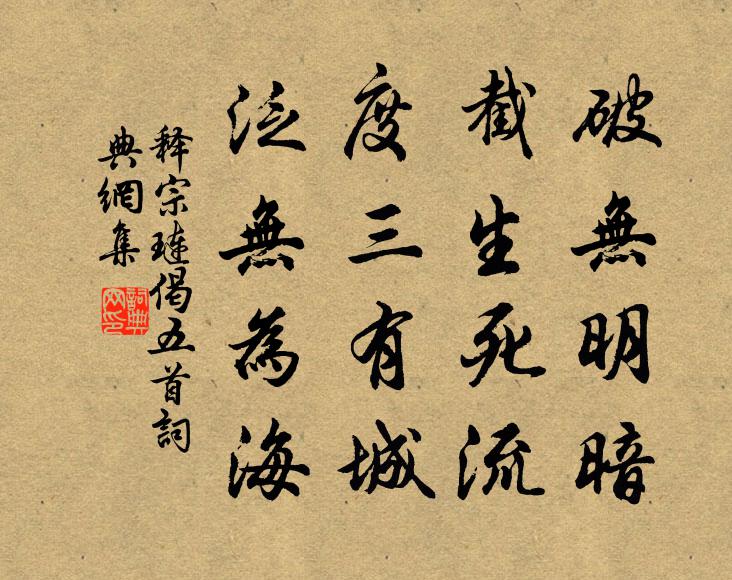 破無明暗
截生死流
度三有城
泛無為海
释宗璉偈五首詞
典網集
詞典网印